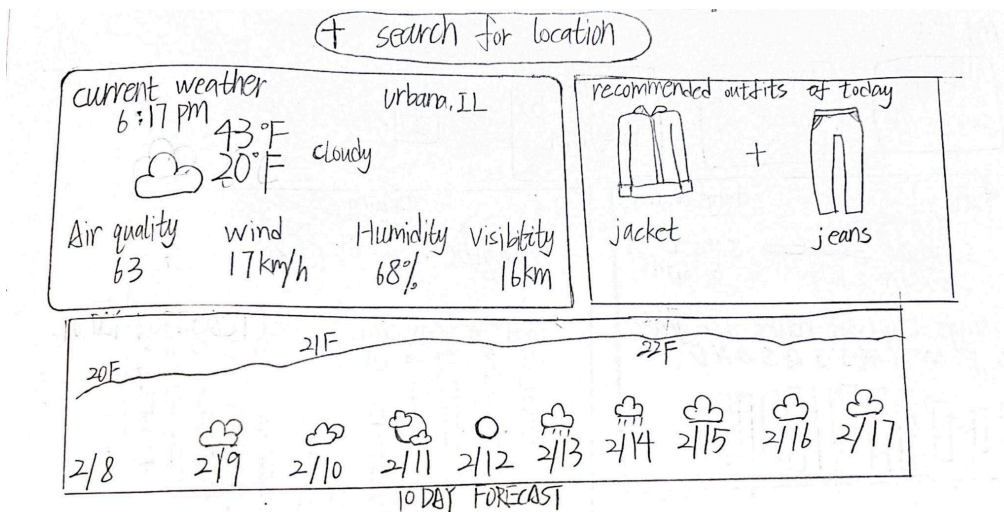 + search for location
current weather
Urbana, IL
6:17 PM
43°F
20°F
cloudy
Air quality
wind
Humidity
Visibility
63
17km/h
68%
16km
recommended outfits of today
+
jacket
jeans
20F
21F
22F
2/8
2/9
2/10
2/11
2/12
2/13
2/14
2/15
2/16
2/17
10 DAY FORECAST